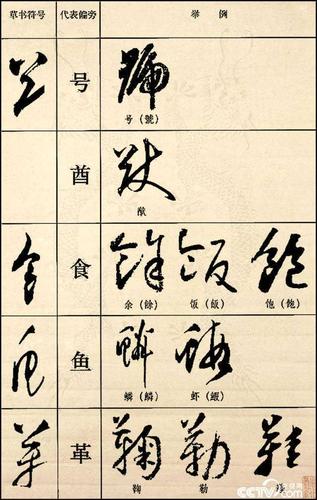 草书符号 代表偏旁 举例
号
号(號)
酋
猷
食
余(餘) 饭(飯) 饱(飽)
鱼
鳞(鱗) 虾(蝦)
革
鞠 勒 鞋
CCTV.com